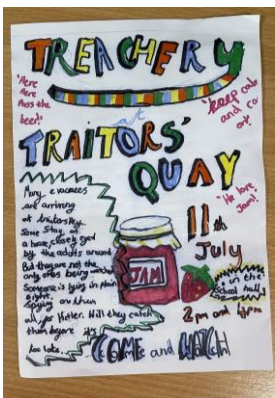 TREACHERY
"Here
Here
Pass the
beer!"
at
"keep calm
and carry
on".
TRAITORS'
QUAY
"He loves
Jam!
Many evacuees
are arriving
at
Some stay in
a house, closely eyed
by the adults around
But they're not the
only ones being watched
Someone is lying in plain
sight.
Spying on them
all for Hitler. Will they catch
them before it's
too late...
JAM
11th
July
in the
School hall
2pm and
COME and WATCH